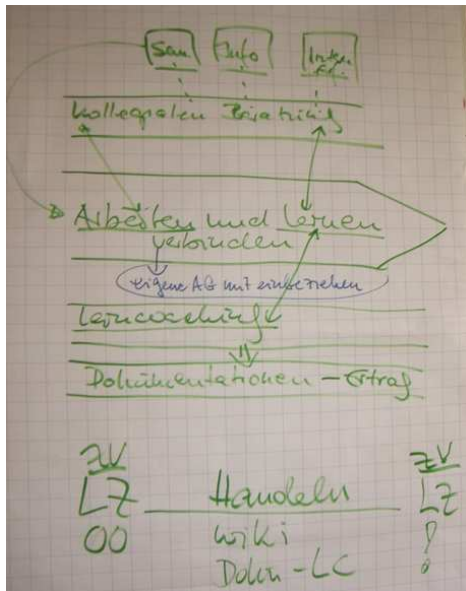 Info
Kollegialen Beratung
Arbeiten und Lernen
verbinden
eigene AG mit einbeziehen
Lerncoaching
Dokumentationen - Ertrag
ZV ZV
LZ Handeln LZ
OO Wiki ?
Doku-LC